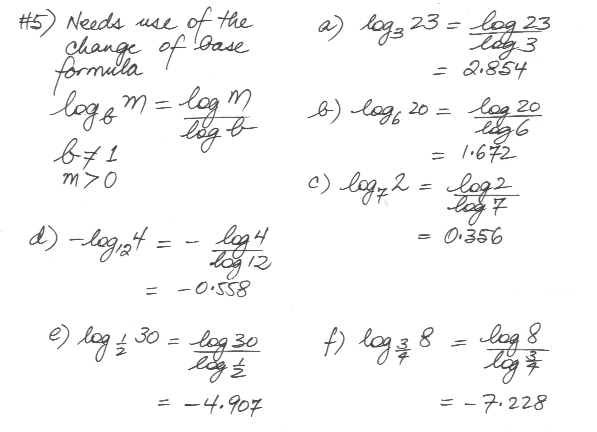 #5) Needs use of the
change of base
formula
log_b m = log m / log b
b ≠ 1
m > 0
a) log_3 23 = log 23 / log 3
= 2.854
b) log_6 20 = log 20 / log 6
= 1.672
c) log_7 2 = log 2 / log 7
= 0.356
d) -log_12 4 = - log 4 / log 12
= -0.558
e) log_1/2 30 = log 30 / log 1/2
= -4.907
f) log_3/4 8 = log 8 / log 3/4
= -7.228